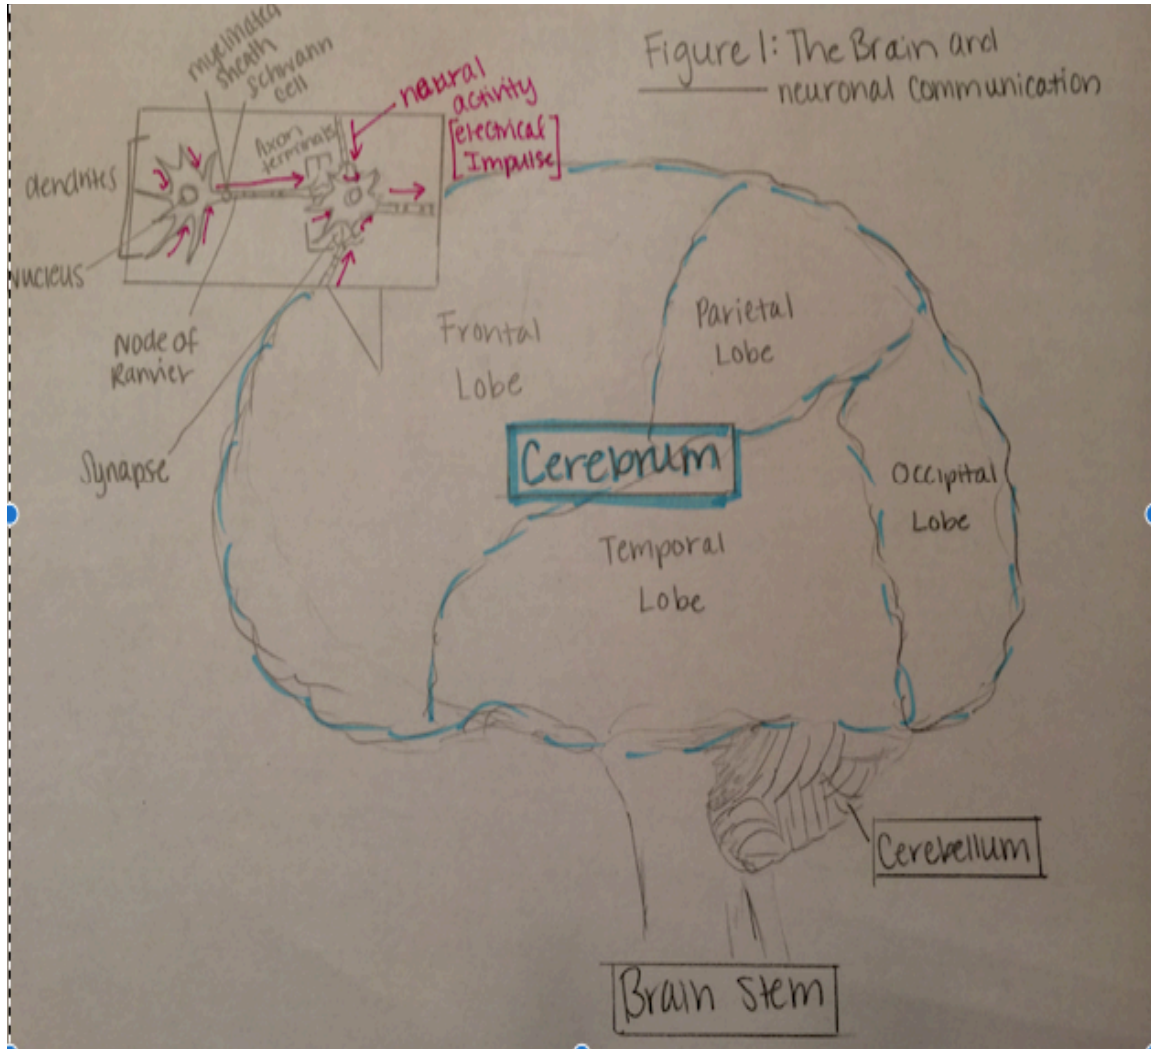 Figure 1: The Brain and
neuronal communication
myelinated
sheath
Schwann
cell
neural
activity
[electrical
Impulse]
Axon
terminals
dendrites
Nucleus
Node of
Ranvier
Synapse
Frontal
Lobe
Parietal
Lobe
Cerebrum
Occipital
Lobe
Temporal
Lobe
Cerebellum
Brain Stem